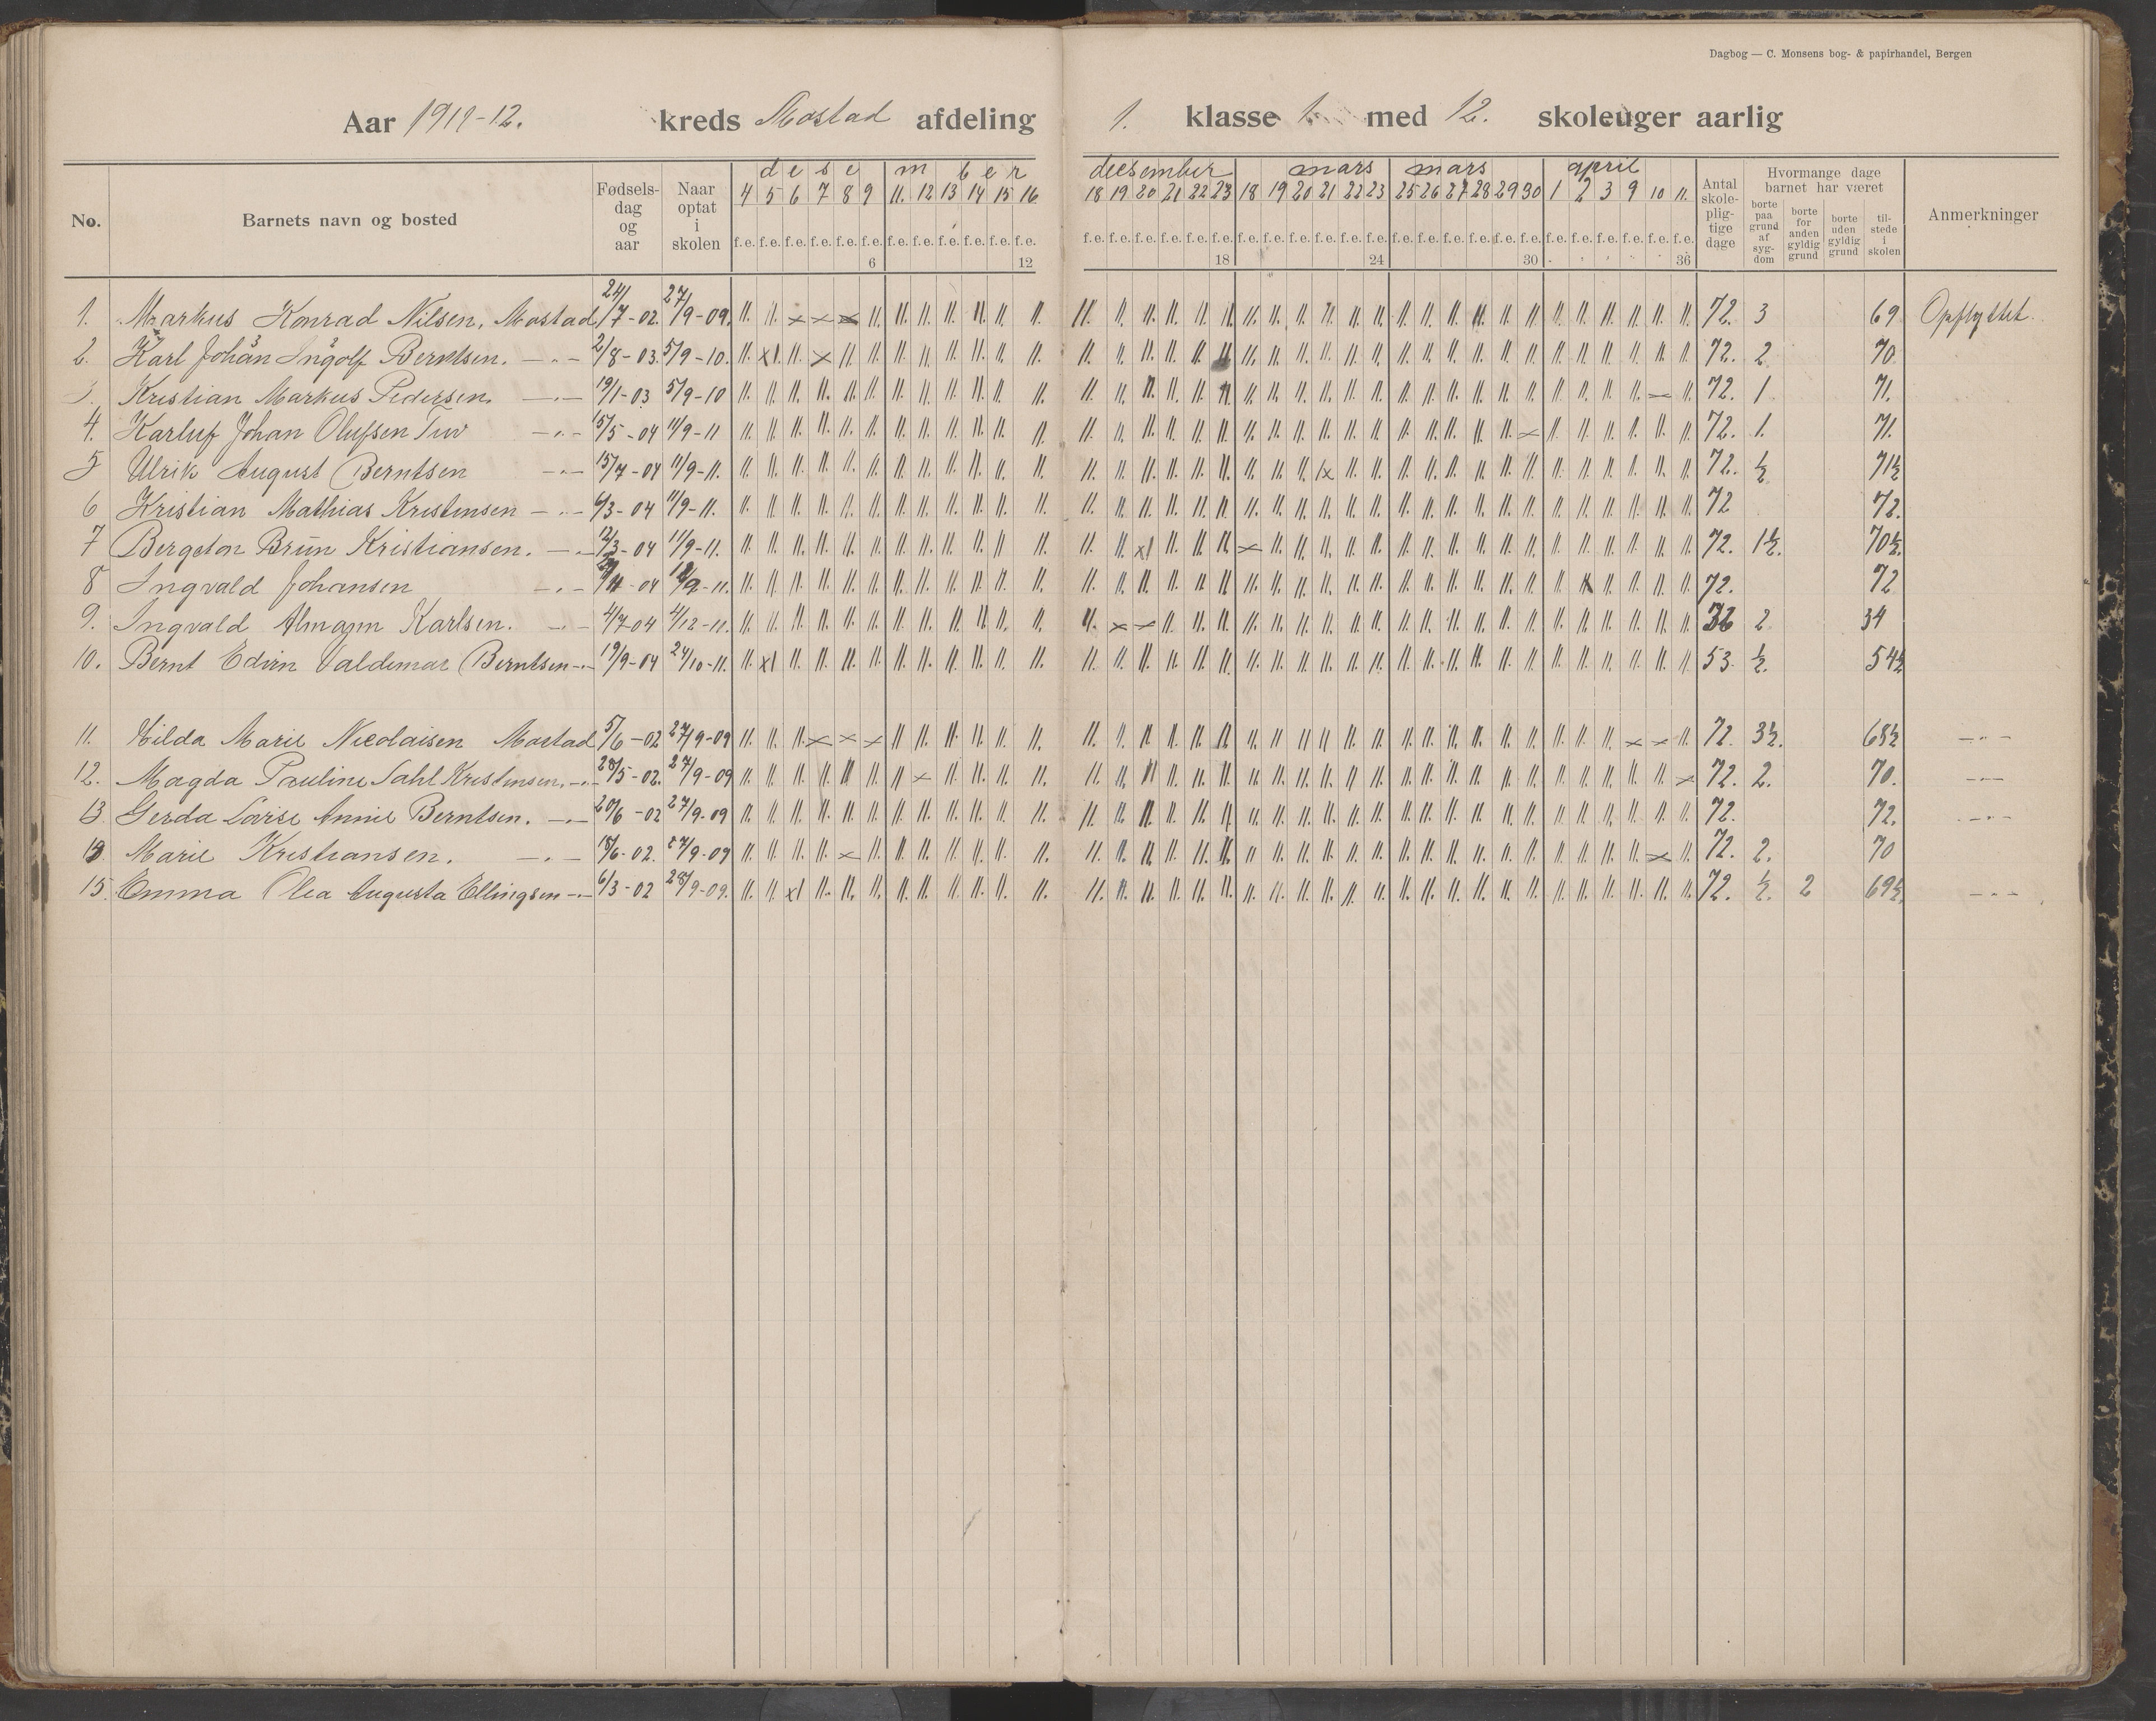 Dagbog — C. Monsens bog- & papirhandel, Bergen
Aar 1911-12. kreds Mostad afdeling 1. klasse 1. med 12. skoleuger aarlig
No. Barnets navn og bosted Fødsels-dag og aar Naar optat i skolen desember desember mars mars april Antal skole-plig-tige dage Hvormange dage barnet har været Anmerkninger
4 5 6 7 8 9 11. 12 13 14 15 16 18 19 20 21 22 23 18 19 20 21 22 23 25 26 27 28 29 30 1 2 3 9 10 11.
borte paa grund af syg-dom borte for anden gyldig grund borte uden gyldig grund til-stede i skolen
f.e. f.e. f.e. f.e. f.e. f.e. f.e. f.e. f.e. f.e. f.e. f.e. f.e. f.e. f.e. f.e. f.e. f.e. f.e. f.e. f.e. f.e. f.e. f.e. f.e. f.e. f.e. f.e. f.e. f.e. f.e. f.e. f.e. f.e. f.e. f.e.
6 12 18 24 30 36
1. Markus Konrad Nilsen, Mostad 24/7-02. 27/9-09. 72. 3 69 Opflyttet.
2. Karl Johan Ingolf Berntsen. —"— 2/8-03. 5/9-10. 72. 2 70
3. Kristian Markus Pedersen. —"— 19/1-03 5/9-10 72. 1 71.
4. Karluf Johan Olufsen Tuv —"— 15/5-04 11/9-11 72. 1. 71.
5 Ulrik August Berntsen —"— 15/7-04 11/9-11. 72. ½ 71½
6 Kristian Mathias Kristensen —"— 6/3-04 11/9-11. 72 72.
7 Bergeton Brun Kristiansen. —"— 12/3-04 11/9-11. 72. 1½. 70½.
8 Ingvald Johansen —"— -04 -11. 72. 72
9. Ingvald Karlsen. —"— 4/7-04 4/12-11. 36 2. 34
10. Bernt Edvin Valdemar Berntsen —"— 19/9-04 24/10-11. 53. ½. 54½
11. Hilda Marie Nicolaisen Mostad 5/6-02 27/9-09 72. 3½. 68½ —"—
12. Magda Pauline Dahl Kristensen, —"— 28/5-02. 27/9-09 72. 2. 70. —"—
13. Gerda Lovise Annie Berntsen. —"— 20/6-02 27/9-09 72. 72. —"—
Marie Kristiansen. —"— 18/6-02. 27/9-09 72. 2. 70
15. Emma Olea Augusta Ellingsen —"— 6/3-02 28/9-09. 72. ½. 2 69½. —"—